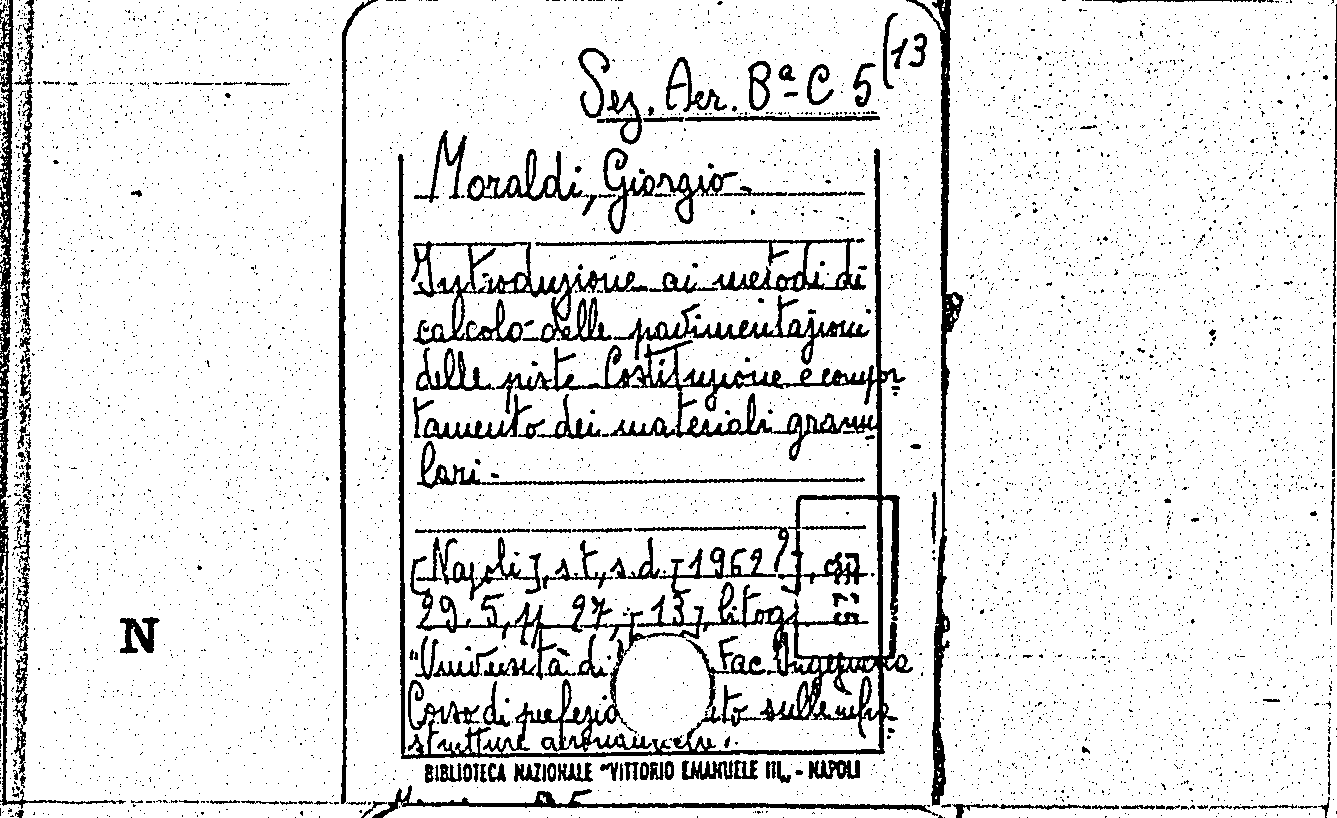 Sez. Aer. Bª C 5 (13
Moraldi, Giorgio.
Introduzione ai metodi di
calcolo delle pavimentazioni
delle piste Costituzione e compor
tamento dei materiali granu
lari.
[Napoli], s.t., s.d. [1962?],
29.5, pp 27, [13], litog.
"Università di Fac. Ingegneria
Corso di sulle infra
strutture aeronautiche".
BIBLIOTECA NAZIONALE "VITTORIO EMANUELE III" - NAPOLI
N